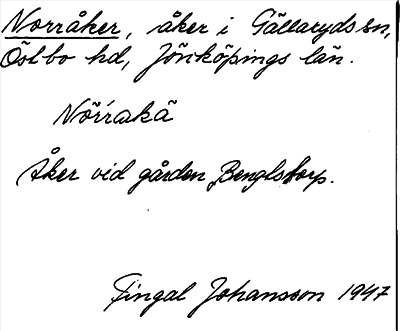 Norråker, åker i Gällaryds sn,
Östbo hd, Jönköpings län.
Nörrakä
Åker vid gården Bengtstorp.
Fingal Johansson 1947